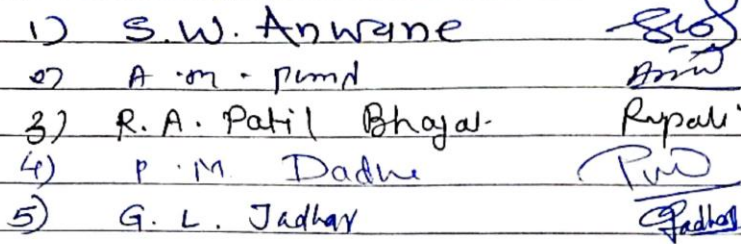 1) S.W. Anwane
2) A.M.
3) R.A. Patil Bhojal- Rupali
4) P.M. Dadhe
5) G.L. Jadhav Jadhav